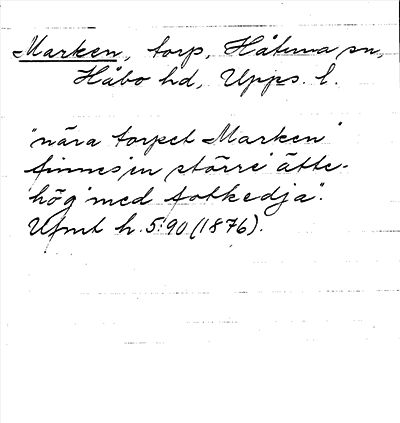 Marken, torp, Håtuna sn,
Håbo hd, Upps. l.
"nära torpet Marken"
finnes "en större ätte-
hög med fotkedja".
Ufmt h. 5:90 (1876).